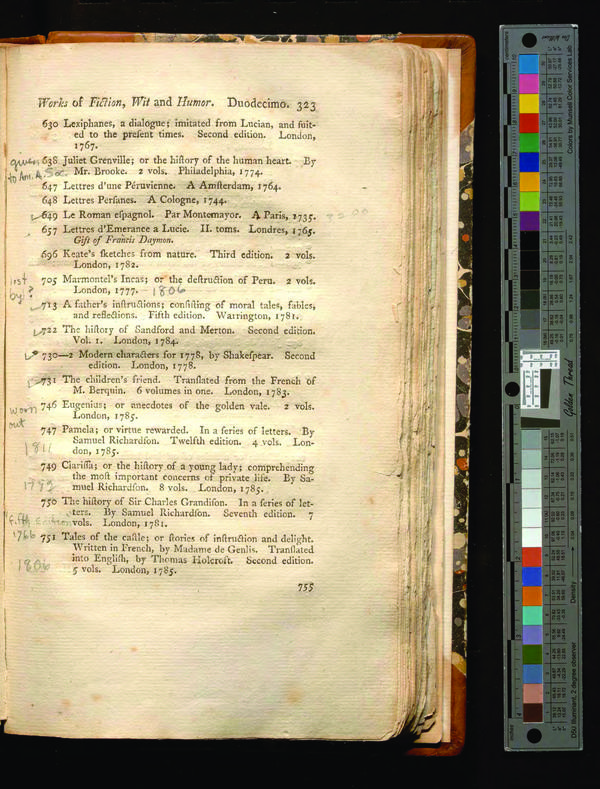 Works of Fiction, Wit and Humor. Duodecimo. 323
630 Lexiphanes, a dialogue; imitated from Lucian, and ſuit-
ed to the preſent times. Second edition. London,
1767.
given 638 Juliet Grenville; or the hiſtory of the human heart. By
to Am. A. Soc. Mr. Brooke. 2 vols. Philadelphia, 1774.
647 Lettres d'une Péruvienne. A Amſterdam, 1764.
648 Lettres Perſanes. A Cologne, 1744.
649 Le Roman eſpagnol. Par Montemayor. A Paris, 1735.
657 Lettres d'Emerance a Lucie. II. toms. Londres, 1765.
Gift of Francis Daymon.
696 Keate's ſketches from nature. Third edition. 2 vols.
London, 1782.
lost 705 Marmontel's Incas; or the deſtruction of Peru. 2 vols.
by? London, 1777. - 1806
713 A father's inſtructions; conſiſting of moral tales, fables,
and reflections. Fifth edition. Warrington, 1781.
722 The hiſtory of Sandford and Merton. Second edition.
Vol. 1. London, 1784.
730—2 Modern characters for 1778, by Shakeſpear. Second
edition. London, 1778.
731 The children's friend. Tranſlated from the French of
M. Berquin. 6 volumes in one. London, 1783.
worn 746 Eugenius; or anecdotes of the golden vale. 2 vols.
out London, 1785.
747 Pamela; or virtue rewarded. In a ſeries of letters. By
Samuel Richardſon. Twelfth edition. 4 vols. Lon-
1811 don, 1785.
749 Clariſſa; or the hiſtory of a young lady; comprehending
the moſt important concerns of private life. By Sa-
muel Richardſon. 8 vols. London, 1785.
750 The hiſtory of Sir Charles Grandiſon. In a ſeries of let-
ters. By Samuel Richardſon. Seventh edition. 7
fifth Edition vols. London, 1781.
1766 751 Tales of the caſtle; or ſtories of inſtruction and delight.
Written in French, by Madame de Genlis. Tranſlated
1806 into Engliſh, by Thomas Holcroft. Second edition.
5 vols. London, 1785.
755
Colors by Munsell Color Services Lab
Golden Thread
Density
D50 Illuminant, 2 degree observer